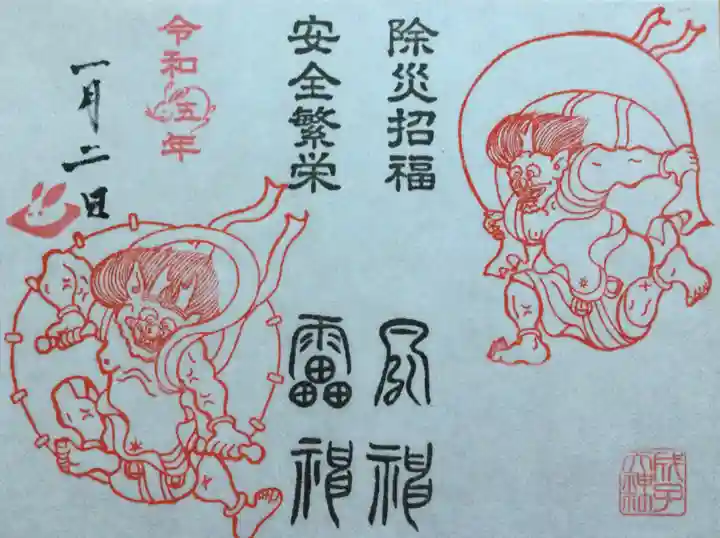 除災招福
安全繁栄
風神
雷神
令和五年
一月二日
成子
天神